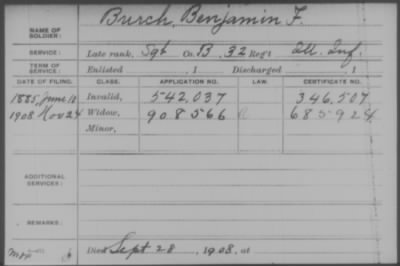 NAME OF SOLDIER: Burch, Benjamin F.
SERVICE: Late rank, Sgt Co. B, 32 Reg't Ill. Inf.
TERM OF SERVICE: Enlisted , 1 Discharged , 1
DATE OF FILING. CLASS. APPLICATION NO. LAW. CERTIFICATE NO.
1885, June 10 Invalid, 542.037 346.507
1908 Nov 24 Widow, 908566 685924
Minor,
ADDITIONAL SERVICES:
REMARKS:
Died Sept 28, 1908, at